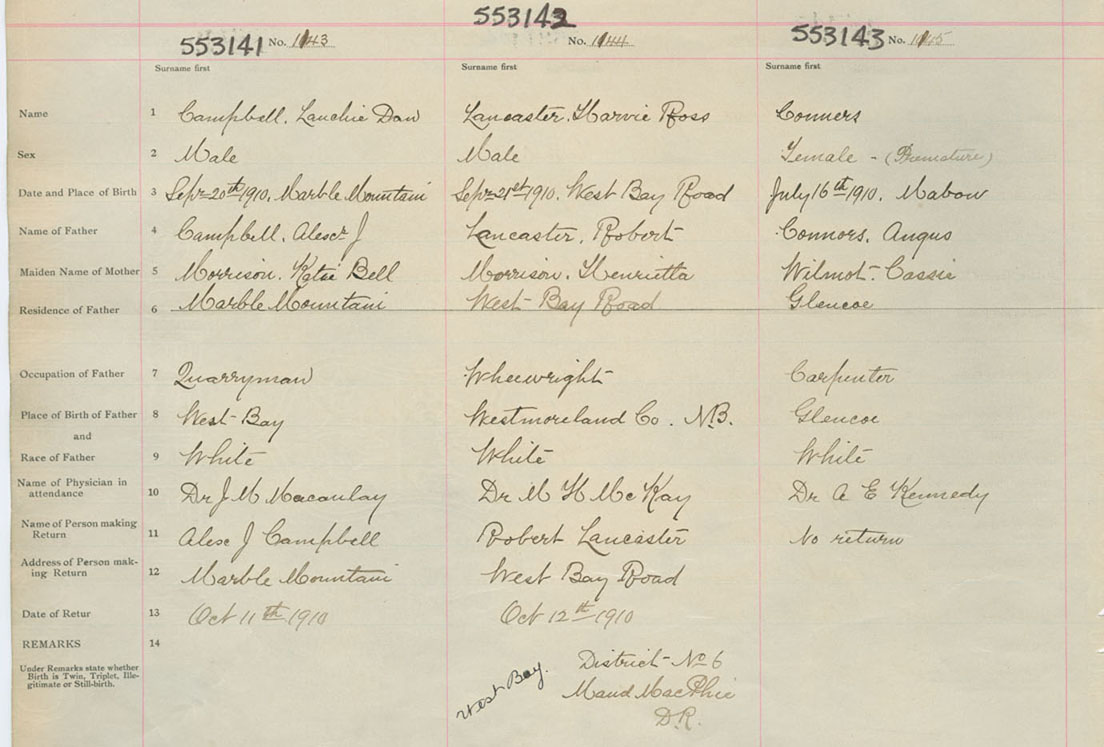 553141 No. 1143 553142 No. 1144 553143 No. 1145
Surname first Surname first Surname first
Name 1 Campbell, Lauchie Dan Lancaster, Harvie Ross Conners
Sex 2 Male Male Female - (Premature)
Date and Place of Birth 3 Sept 20th 1910, Marble Mountain Sept 21st 1910, West Bay Road July 16th 1910, Mabou
Name of Father 4 Campbell, Alexr J Lancaster, Robert Connors, Angus
Maiden Name of Mother 5 Morrison, Katie Bell Morrison, Henrietta Wilmot, Cassie
Residence of Father 6 Marble Mountain West Bay Road Glencoe
Occupation of Father 7 Quarryman Wheewright Carpenter
Place of Birth of Father 8 West Bay Westmoreland Co. N.B. Glencoe
and
Race of Father 9 White White White
Name of Physician in
attendance 10 Dr J M Macaulay Dr M H McKay Dr A E Kennedy
Name of Person making
Return 11 Alex J Campbell Robert Lancaster No return
Address of Person mak-
ing Return 12 Marble Mountain West Bay Road
Date of Retur 13 Oct 11th 1910 Oct 12th 1910
REMARKS 14
Under Remarks state whether
Birth is Twin, Triplet, Ille-
gitimate or Still-birth.
West Bay. District No 6
Maud MacPhie
D.R.